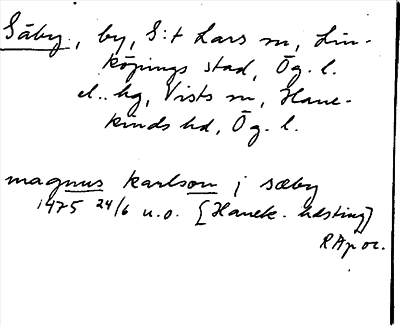 Säby, by, S:t Lars sn, Lin-
köpings stad, Ög. l.
el. hg, Vists sn, Hane-
kinds hd, Ög. l.
magnus karlson j sæby
1475 24/6 u.o. [Hanek. hdsting]
RAp or.